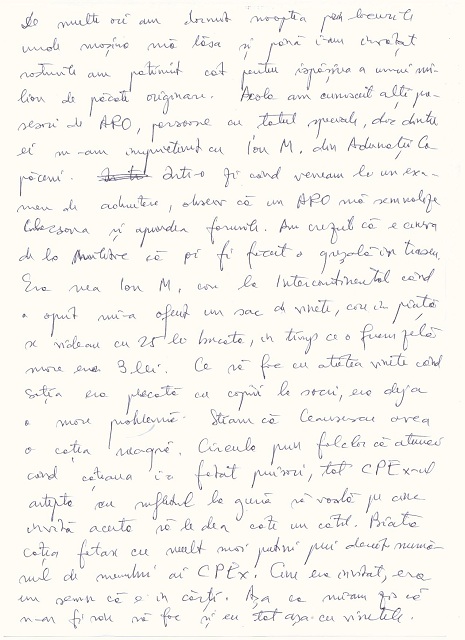 De multe ori am dormit noaptea prin locurile
unde mașina mă lăsa și până i-am învățat
rosturile am pătimit cât pentru ispășirea a unui mi-
lion de păcate originare. Acolo am cunoscut alți po-
sesori de ARO, persoane cu totul speciale, doi dintre
ei m-am împrietenit cu Ion M. din Adunații Co-
păceni. Într-o zi când veneam la un exa-
men de admitere, observ că un ARO mă semnalizează
și aprindea farurile. Am crezut că e cineva
de la că oi fi făcut o greșală în traseu.
Era nea Ion M, care la Intercontinental când
a oprit mi-a oferit un sac de vinete, care în piață
se vindeau cu 25 lei bucata, în timp ce o franzelă
mare era 3 lei. Ce să fac cu atâtea vinete când
soția era plecată cu copiii la socri, era deja
o mare problemă. Știam că Ceaușescu avea
o cățea neagră. Circula prin folclor că atunci
când cățeaua i-a fătat puișori, tot CPEx-ul
aștepta cu sufletul la gură să vadă pe cine
invită acesta să le dea câte un cățel. Biata
cățea fătase cu mult mai puțini pui decât numă-
rul de membri ai CPEx. Cine era invitat, era
un semn că e în cărți. Așa ca mi-am zis că
n-ar fi rău să fac și eu tot așa cu vinetele.